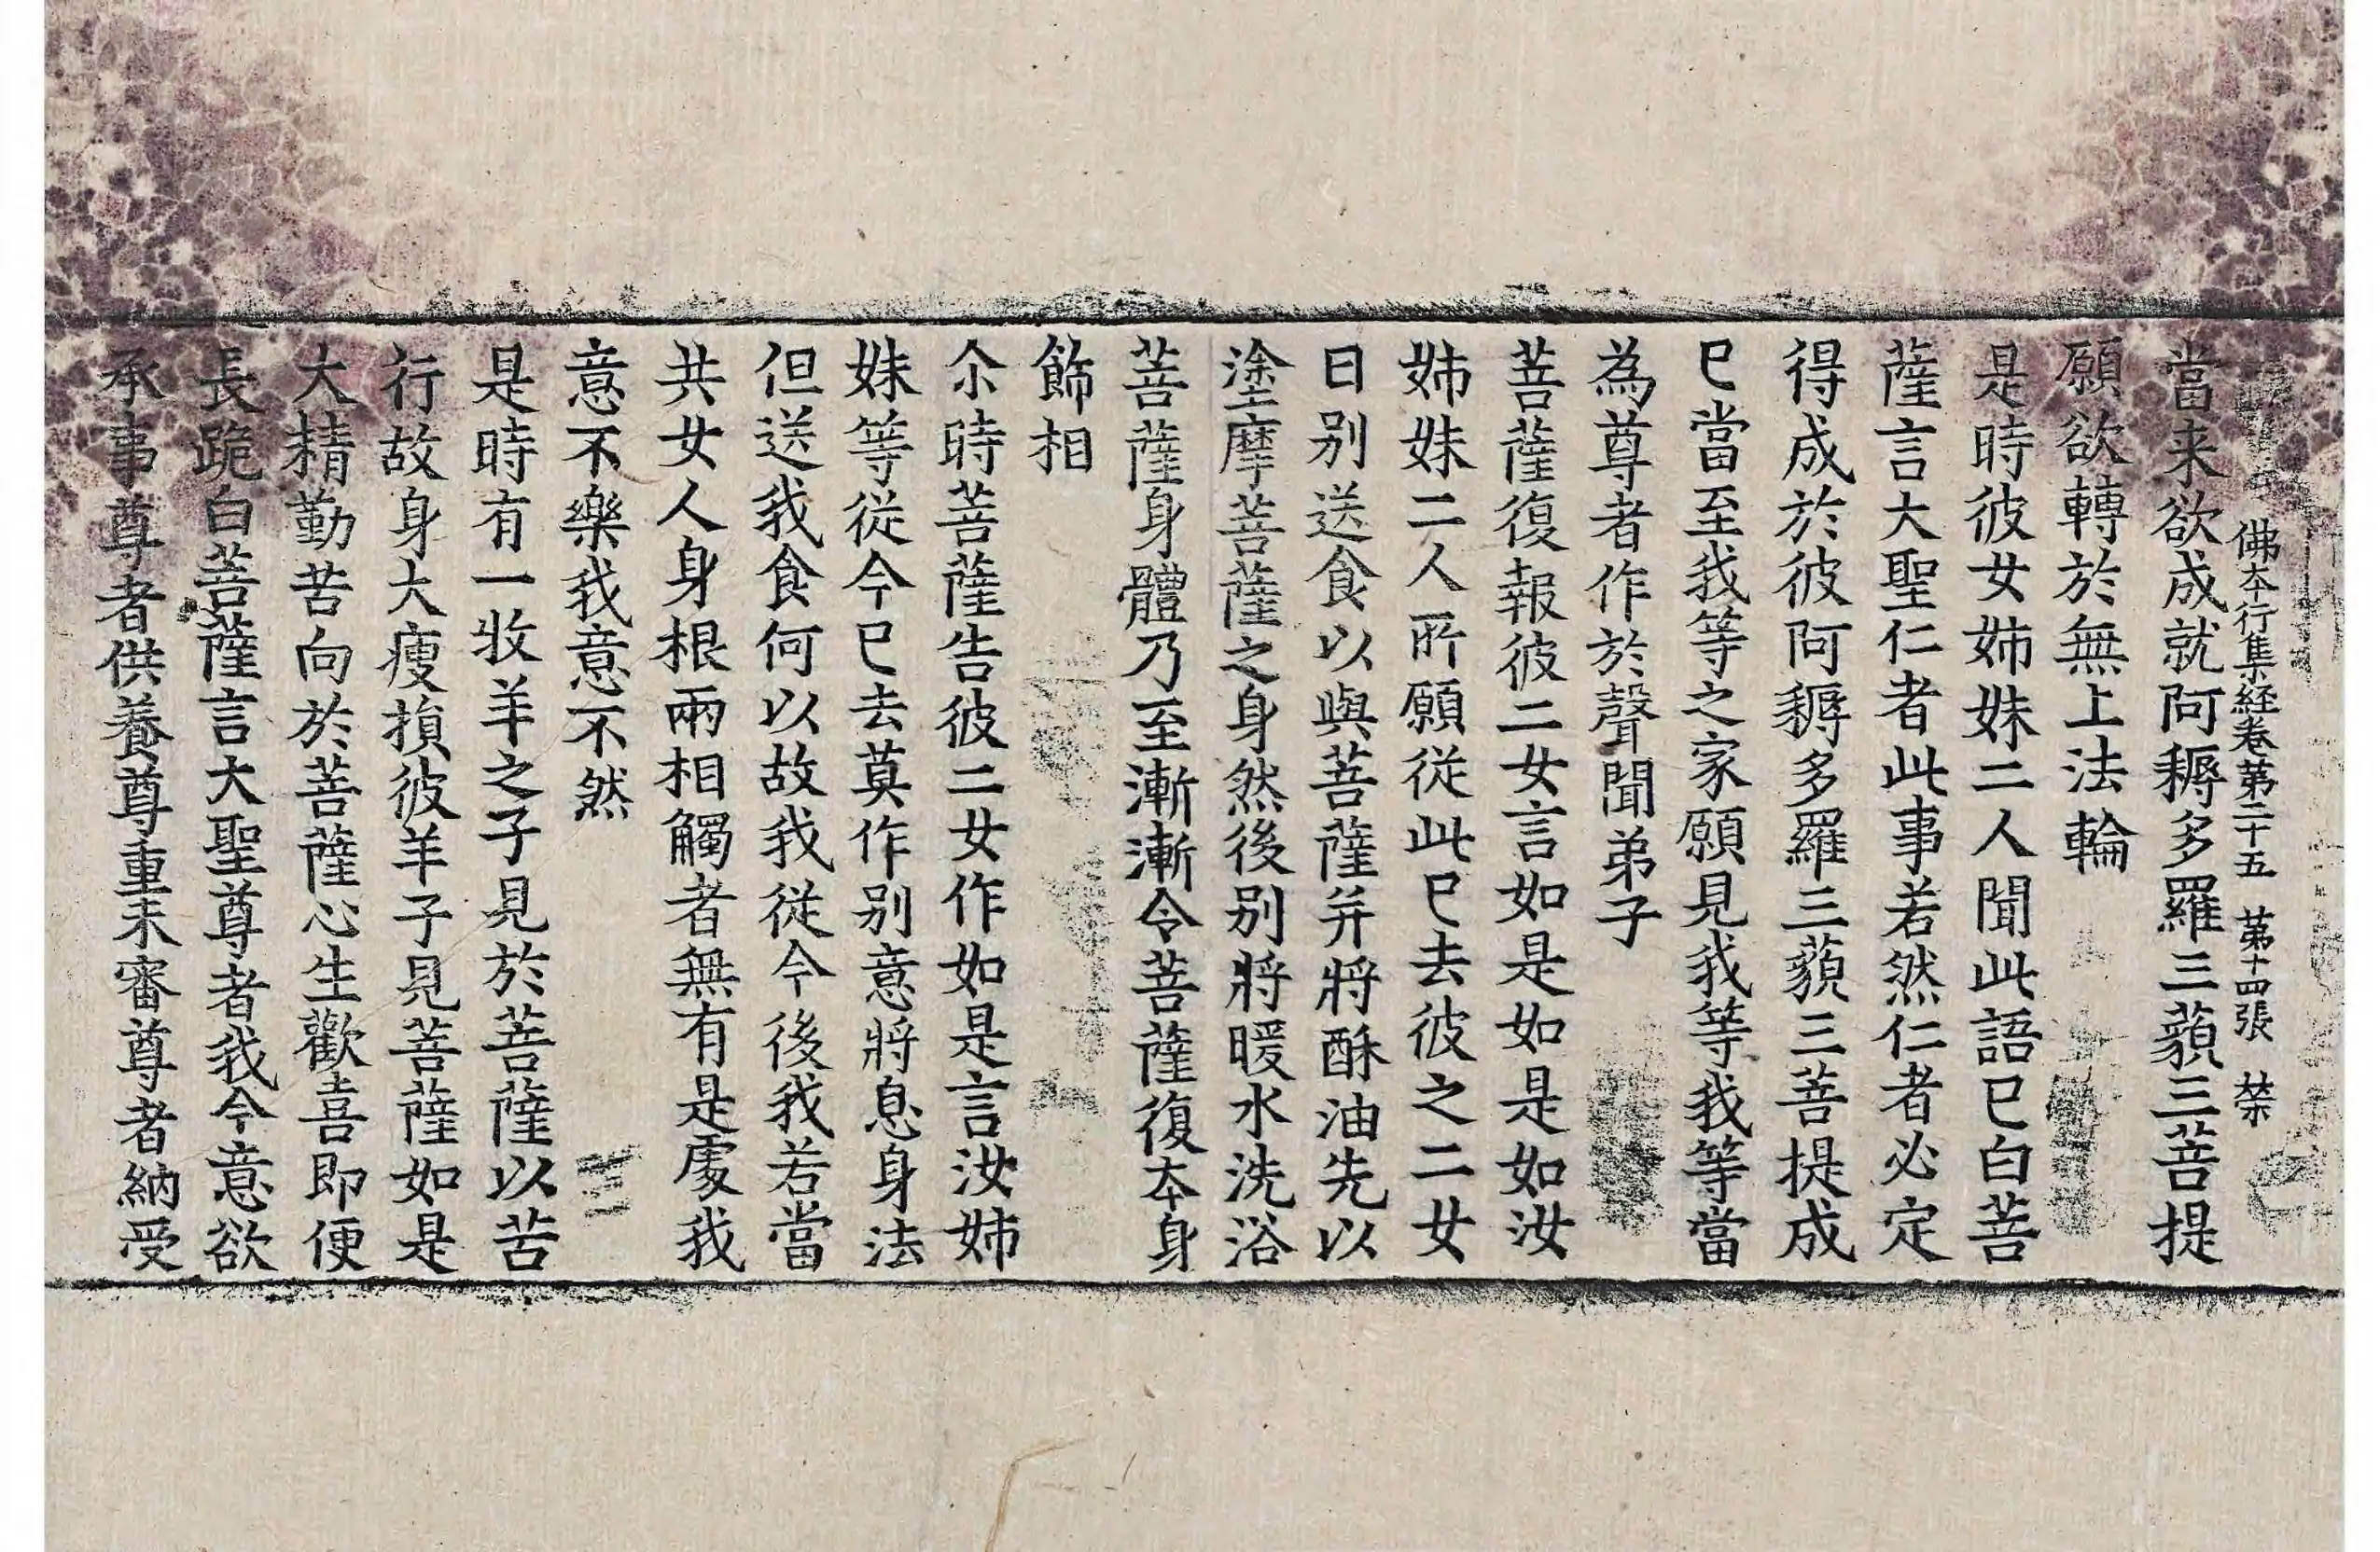 佛本行集経卷苐二十五 苐十四張 榮
當来欲成就阿耨多羅三藐三菩提
願欲轉於無上法輪
是時彼女姊妹二人聞此語已白菩
薩言大聖仁者此事若然仁者必定
得成於彼阿耨多羅三藐三菩提成
已當至我等之家願見我等我等當
為尊者作於聲聞弟子
菩薩復報彼二女言如是如是如汝
姊妹二人所願從此已去彼之二女
日別送食以與菩薩并將酥油先以
塗摩菩薩之身然後別將暖水洗浴
菩薩身體乃至漸漸令菩薩復本身
飾相
尒時菩薩告彼二女作如是言汝姊
妹等從今已去莫作別意將息身法
但送我食何以故我從今後我若當
共女人身根兩相觸者無有是處我
意不樂我意不然
是時有一牧羊之子見於菩薩以苦
行故身大瘦損彼羊子見菩薩如是
大精勤苦向於菩薩心生歡喜即便
長跪白菩薩言大聖尊者我今意欲
承事尊者供養尊重未審尊者納受